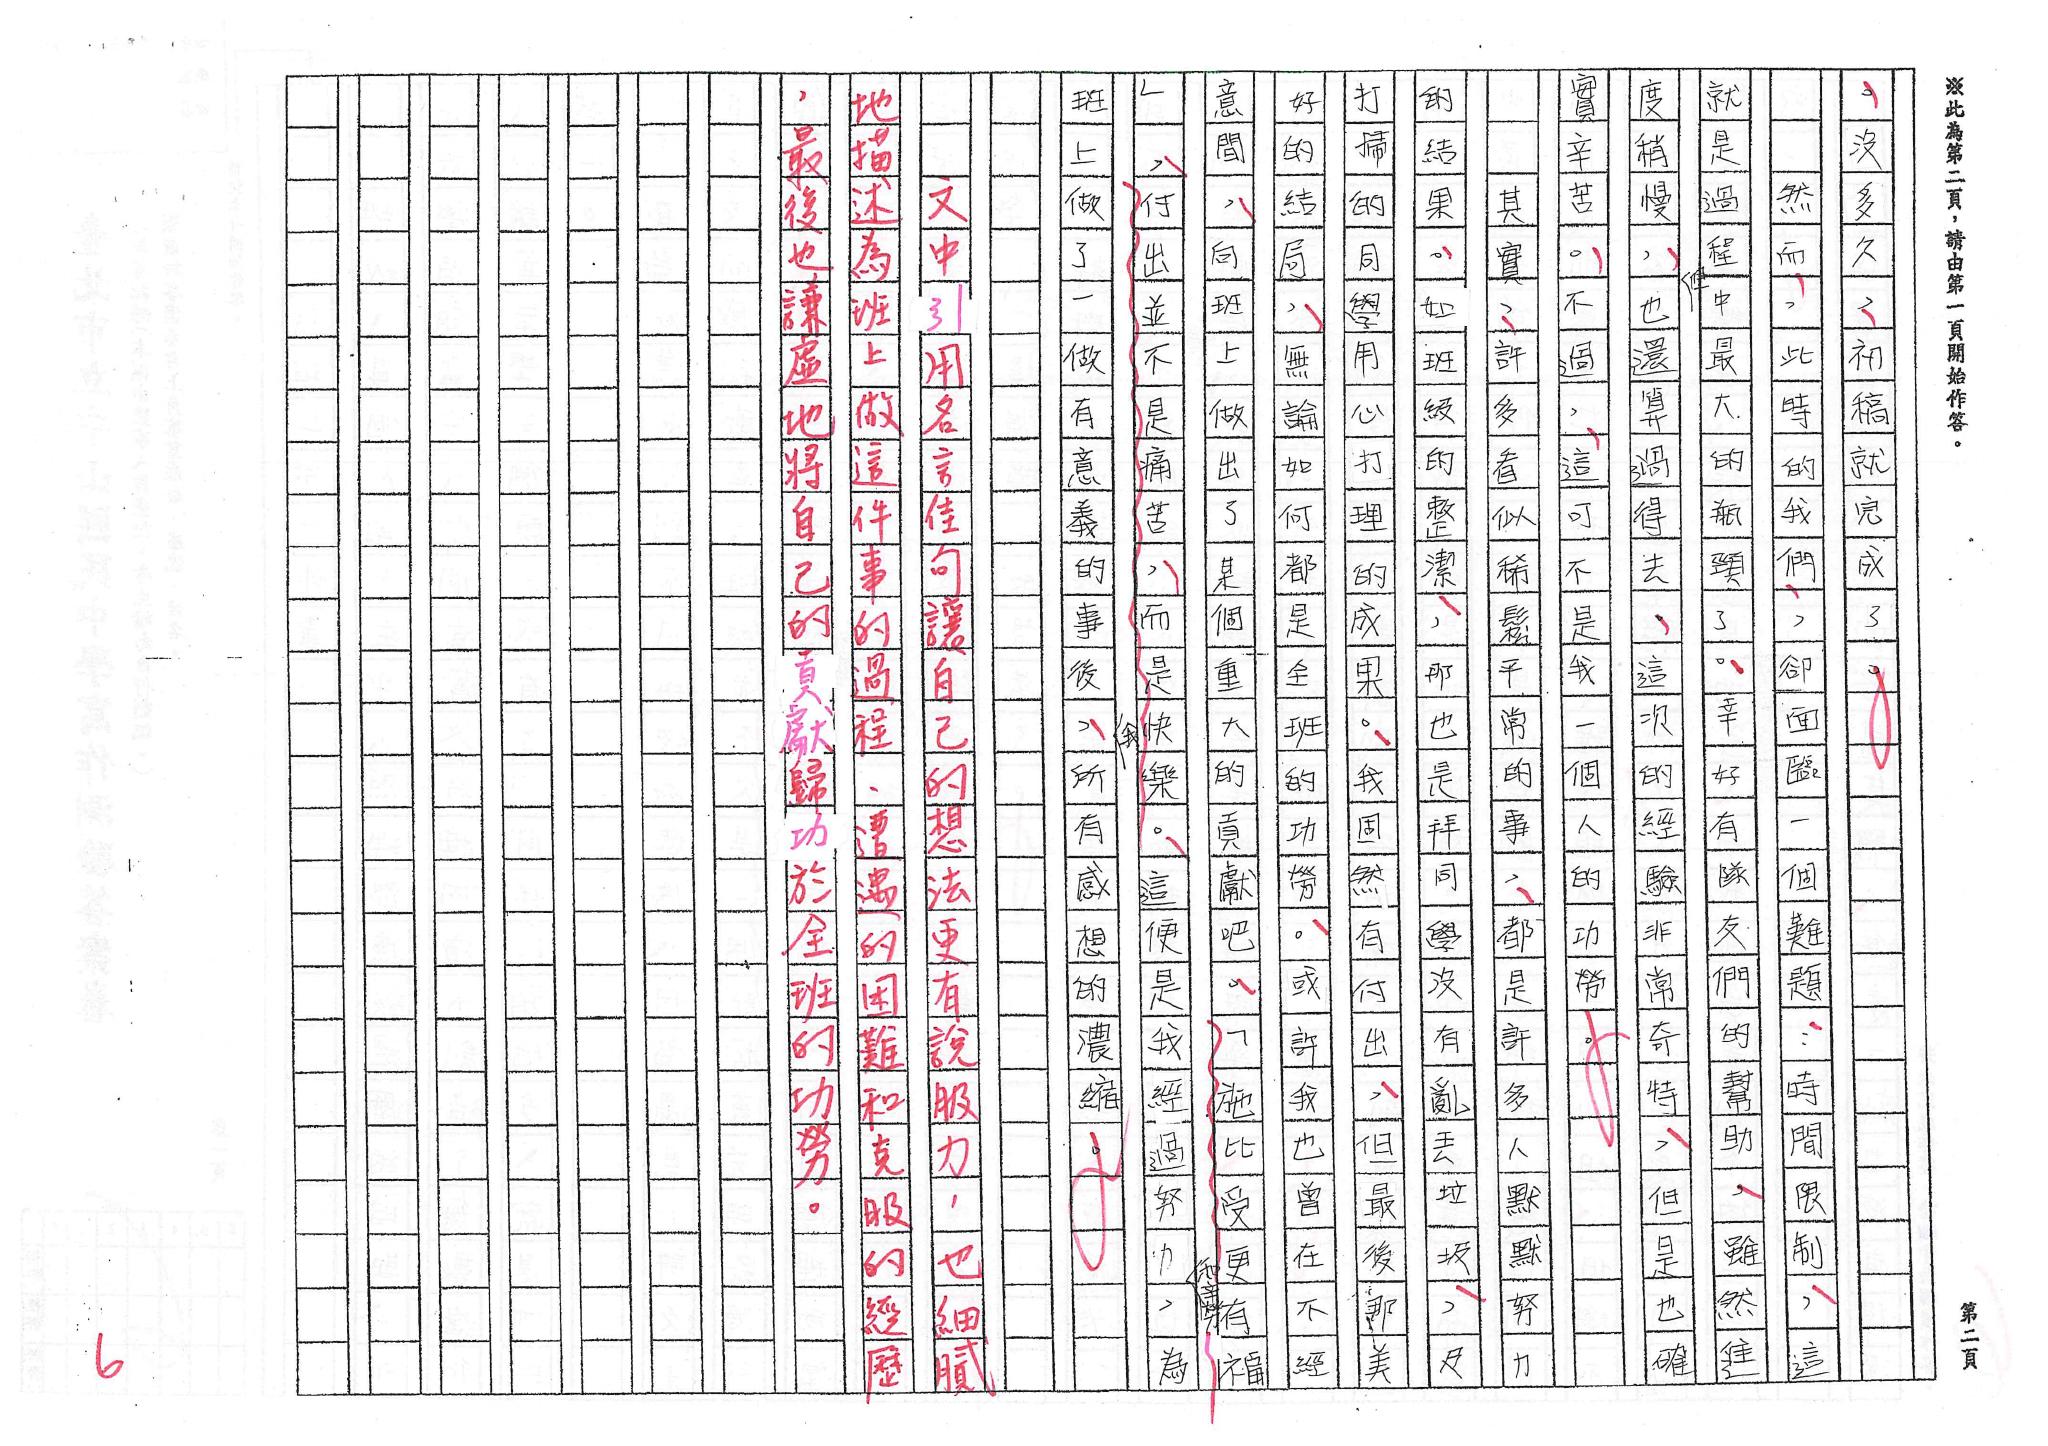 ※此為第二頁，請由第一頁開始作答。
第二頁
。沒多久，初稿就完成了。
然而，此時的我們，卻面臨一個難題：時間限制，這
就是過程中最大的瓶頸了。幸好有隊友們的幫助，雖然進
度稍慢，但也還算過得去，這次的經驗非常奇特，但是也確
實辛苦。不過，這可不是我一個人的功勞。
其實，許多看似稀鬆平常的事，都是許多人默默努力
的結果。如班級的整潔，那也是拜同學沒有亂丟垃圾，及
打掃的同學用心打理的成果。我固然有付出，但最後那美
好的結局，無論如何都是全班的功勞。或許我也曾在不經
意間，向班上做出了某個重大的貢獻吧。「施比受更有福
」，付出並不是痛苦，而是快樂。這便是我經過努力和辛勞，為
班上做了一做有意義的事後，我所有感想的濃縮。
文中引用名言佳句讓自己的想法更有說服力，也細膩
地描述為班上做這件事的過程、遭遇的困難和克服的經歷
，最後也謙虛地將自己的貢獻歸功於全班的功勞。
6